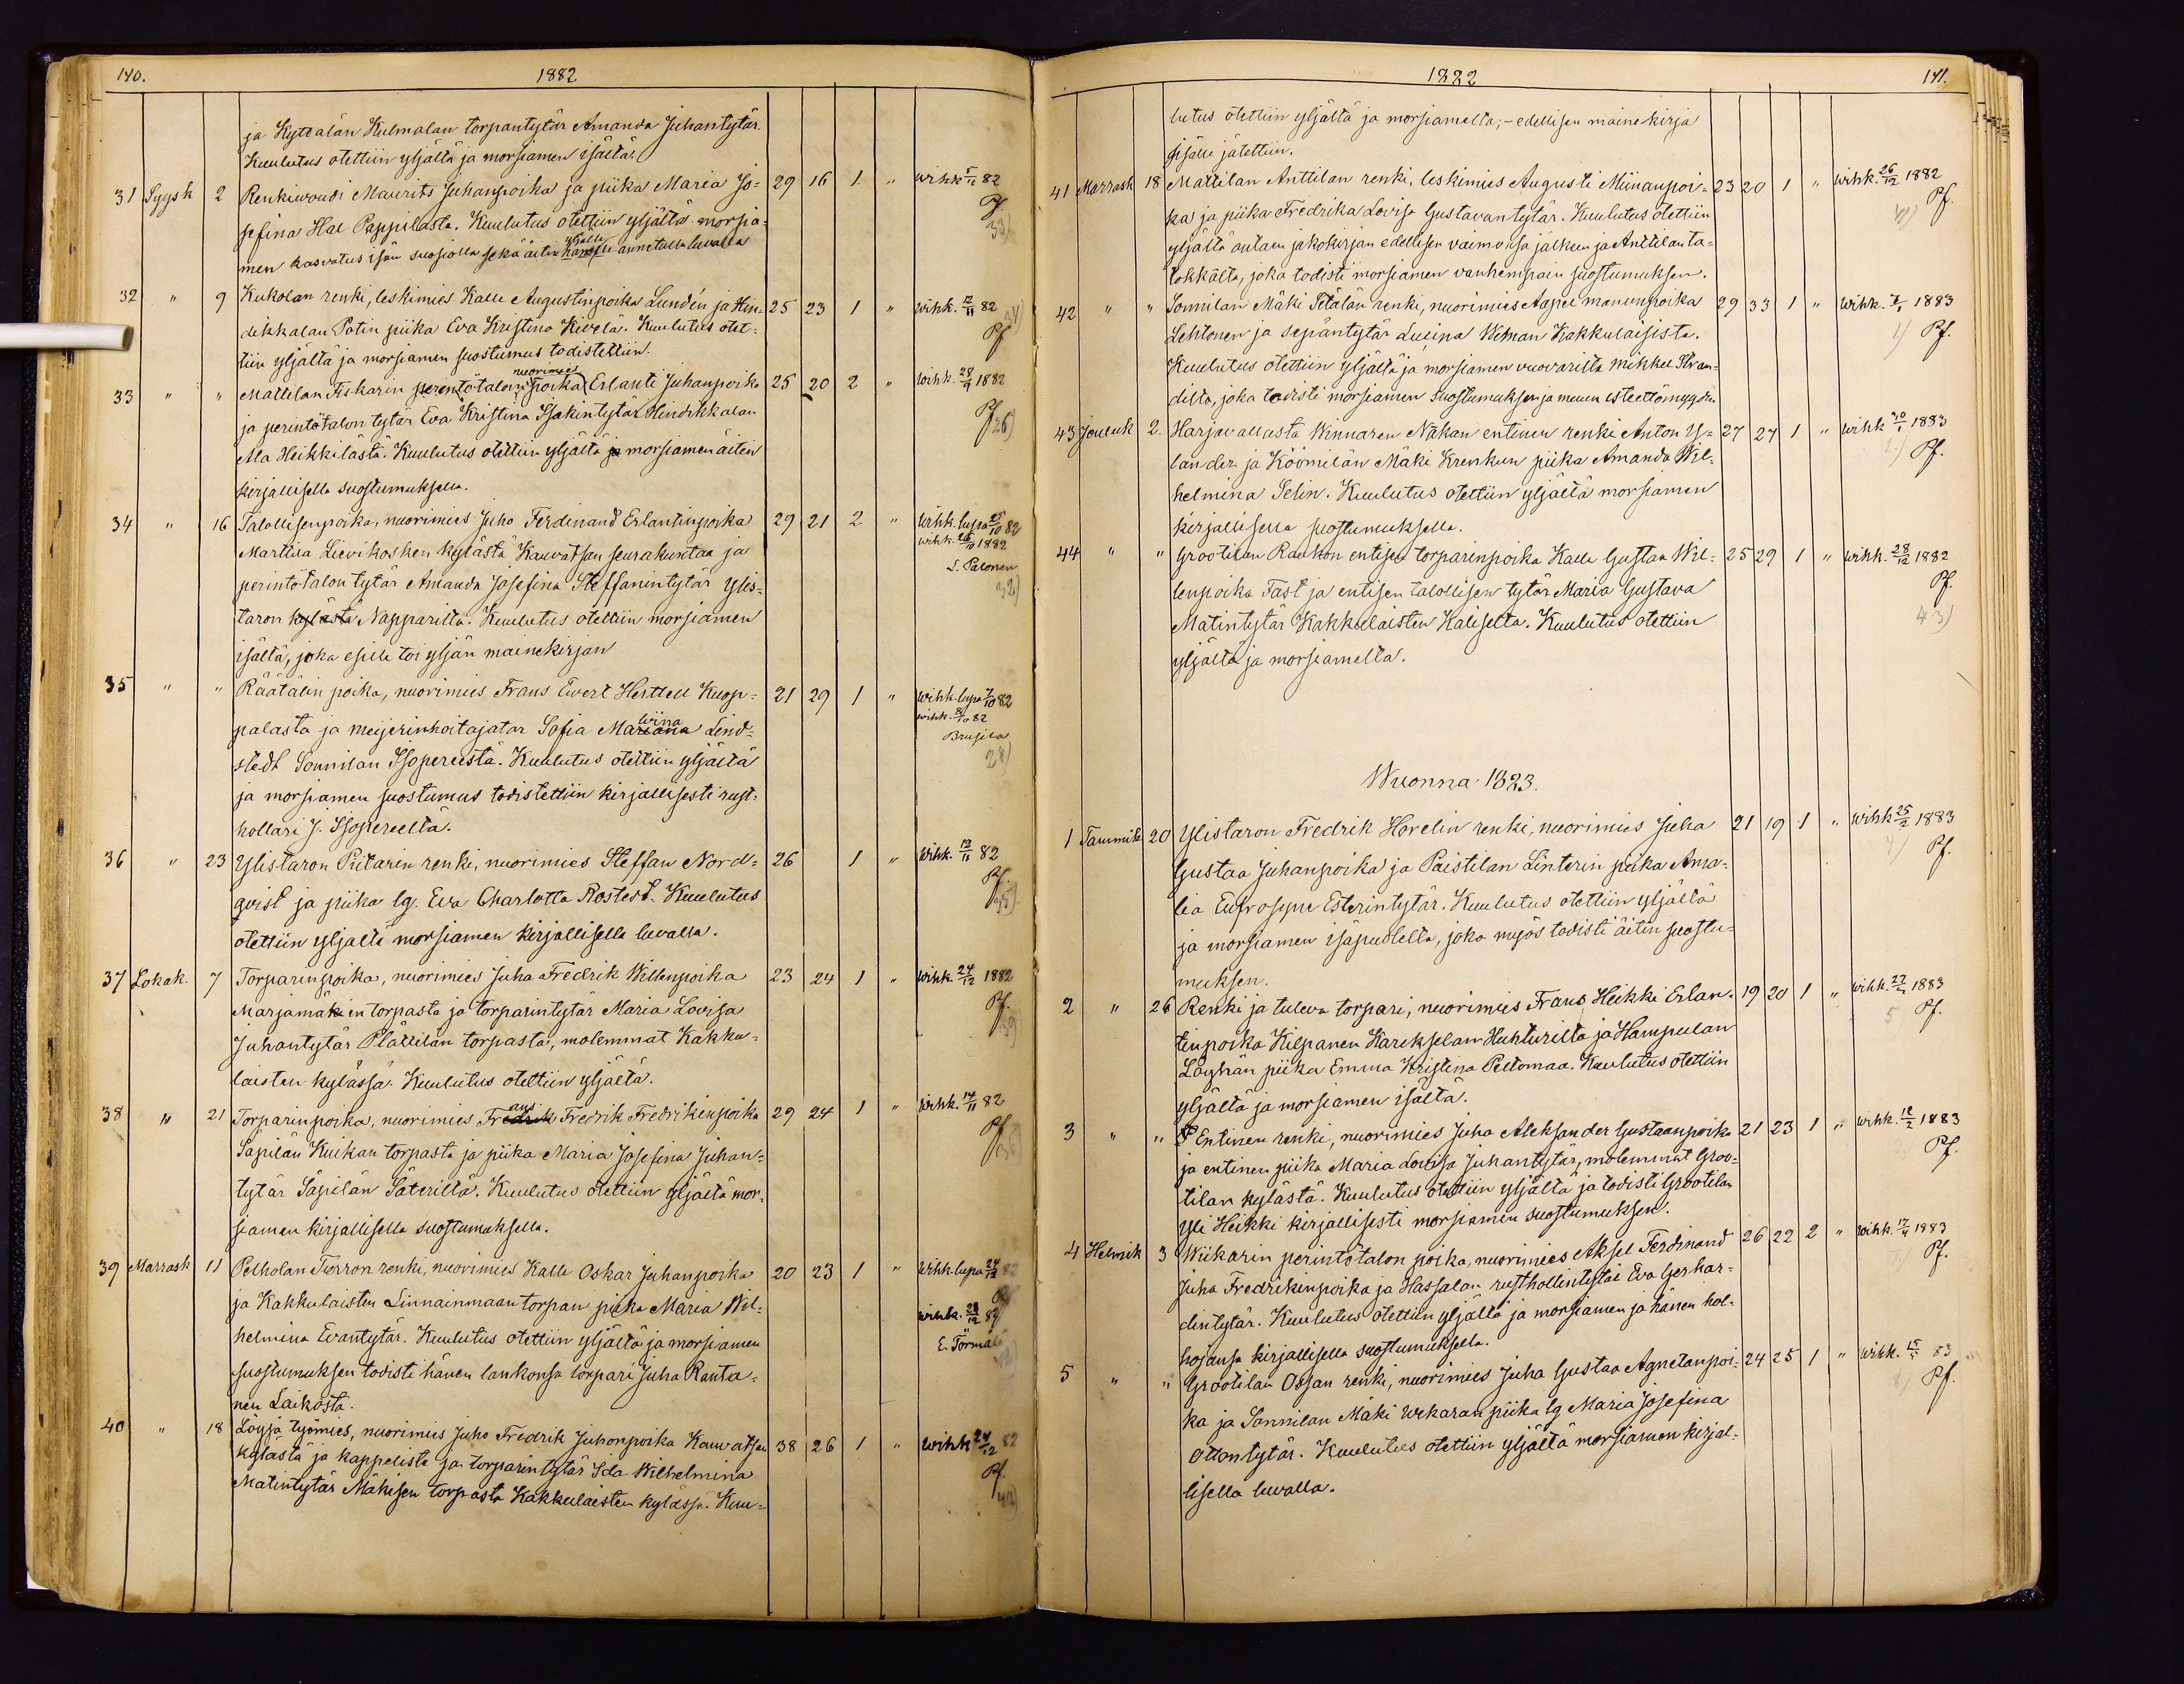 140. 1882
ja Kyttälän Kulmalan torpantytär Amanda Juhantytär.
Kuulutus otettiin yljältä ja morsiamen isältä.
31 Syysk 2 Renkiwouti Maurits Juhanpoika ja piika Maria Jo= 29 16 1 " wihk 82
sefina Hal Pappilasta. Kuulutus otettiin yljältä morsia= 33)
men kasvatus isän suosiolla sekä äitin hänelle yljälle annetulla luvalla
32 " 9 Kukolan renki, leskimies Kalle Augustinpoika Lundén ja Hin= 25 23 1 " wihk. 12/11 82
dikkalan Potin piika Eva Kristina Kivelä. Kuulutus otet= 34) Pf
tiin yljältä ja morsiamen suostumus todistettiin.
33 " " Mattilan Fiskarin perintötalon poika nuorimies Erlanti Juhanpoika 25 20 2 " wihk. 28/9 1882
ja perintötalon tytär Eva Kristina Isakintytär Hindikkalan Pf 26)
Ala Heikkilästä. Kuulutus otettiin yljältä ja morsiamen äiten
kirjallisella suostumuksella.
34 " 16 Talollisenpoika, nuorimies Juho Ferdinand Erlantinpoika 29 21 2 " wihk. lupa 25/10 82
Marttila Lievikosken kylästä Kauvatsan seurakuntaa ja wihk. 26/10 1882
perintö-talon tytär Amanda Josefina Steffanintytär Ylis= S. Salonen 32)
taron kylästä Napparilta. Kuulutus otettiin morsiamen
isältä, joka esille toi yljän mainekirjan
35 " " Räätälin poika, nuorimies Frans Ewert Herttell Kuop= 21 29 1 " wihk. lupa 7/10 82
palasta ja meijerinhoitajatar Sofia Mariana wiina Lind= wihk. 8/10 82
stedt Sonnilan Isopereestä. Kuulutus otettiin yljältä 28)
ja morsiamen suostumus todistettiin kirjallisesti rust=
hollari J. Isopereeltä.
36 " 23 Ylistaron Pietarin renki, nuorimies Steffan Nord= 26 1 " wihk. 12/11 82
qvist ja piika lg. Eva Charlotta Rostedt. Kuulutus Pf 35)
otettiin yljältä morsiamen kirjallisella luvalla.
37 Lokak. 7 Torparinpoika, nuorimies Juha Fredrik Willenpoika 23 24 1 " wihk. 24/12 1882
Marjamäkien torpasta ja torparintytär Maria Lovisa Pf. 39)
Juhantytär Plättilän torpasta, molemmat Kakku=
laisten kylässä. Kuulutus otettiin yljältä.
38 " 21 Torparinpoika, nuorimies Fredrik ans Fredrik Fredrikinpoika 29 24 1 " wihk. 14/11 82
Säpilän Kuikan torpasta ja piika Maria Josefina Juhan= Pf 36)
tytär Säpilän Säteriltä. Kuulutus otettiin yljältä mor=
siamen kirjallisella suostumuksella.
39 Marrask 11 Pelholan Torron renki, nuorimies Kalle Oskar Juhanpoika 20 23 1 " wihk. lupa 24/12 82
ja Kakkulaisten Linnainmaan torpan piika Maria Wil= Pf
helmina Evantytär. Kuulutus otettiin yljältä ja morsiamen wihk. 28/12 82
suostumuksen todisti hänen lankonsa torpari Juha Ranta= E. Törmälä
nen Laikosta.
40 " 18 Löysä työmies, nuorimies Juho Fredrik Juhonpoika Kauvatsan 38 26 1 " wihk 24/12 82
kylästä ja kappelista ja torparintytär Ida Wilhelmina Pf.
Matintytär Mäkisen torpasta Kakkulaisten kylässä. Kuu= 40)
1882 141.
lutus otettiin yljältä ja morsiamelta; - edellisen mainekirja
sisälle jätettiin.
41 Marrask 18 Mattilan Anttilan renki, leskimies Augusti Miinanpoi= 23 20 1 " wihk. 26/12 1882
ka ja piika Fredrika Lovisa Gustavantytär. Kuulutus otettiin 41) Pf.
yljältä antaen jakokirjan edellisen vaimonsa jälkeen ja Anttilan ta=
lokkälta, joka todisti morsiamen vanhempain suostumuksen.
42 " " Sonnilan Mäki Petälän renki, nuorimies Aapeli manunpoika 29 33 1 " wihk. 1883
Lehtonen ja sepäntytär Lusina Weman Kakkulaisista. 1) Pf.
Kuulutus otettiin yljältä ja morsiamen vuovarilta Mikkel Stran=
dilta, joka todisti morsiamen suostumuksen ja muun esteettömyyden
43 Jouluk 2. Harjavallasta Winnaren Näkan entinen renki Anton Y= 27 27 1 " wihk 1883
lander ja Köömilän Mäki Krenkun piika Amanda Wil= 2) Pf.
helmina Selin. Kuulutus otettiin yljältä morsiamen
kirjallisella suostumuksella.
44 " " Grootilan Raukon entisen torparinpoika Kalle Gustaa Wil= 25 29 1 " wihk. 28/12 1882
lenpoika Fast ja entisen talollisen tytär Maria Gustava Pf.
Matintytär Kakkulaisten Kaliselta. Kuulutus otettiin 43)
yljältä ja morsiamelta.
Wuonna 1883.
1 Tammik 20 Ylistaron Fredrik Horelin renki, nuorimies Juha 21 19 1 " wihk 25/2 1883
Gustaa Juhanpoika ja Paistilan Linterin piika Ama= 4) Pf.
lia Eufrosyne Esterintytär. Kuulutus otettiin yljältä
ja morsiamen isäpuolelta, joka myös todisti äitin suostu=
muksen.
2 " 26 Renki ja tuleva torpari, nuorimies Frans Heikki Erlan= 19 20 1 " wihk. 1883
tinpoika Kilpanen Karekselan Huhturilta ja Hampulan 5) Pf.
Löyhän piika Emma Kristina Peltomaa. Kuulutus otettiin
yljältä ja morsiamen isältä.
3 " " Entinen renki, nuorimies Juha Aleksander Gustaanpoika 21 23 1 " wihk. 18/2 1883
ja entinen piika Maria Lovisa Juhantytär, molemmat Groo= 3) Pf.
tilan kylästä. Kuulutus otettiin yljältä ja todisti Grootilan
Yli Heikki kirjallisesti morsiamen suostumuksen.
4 Helmik 3 Wiikarin perintötalon poika, nuorimies Aksel Ferdinand 26 22 2 " wihk. 1883
Juha Fredrikinpoika ja Hassalan rusthollintytär Eva Gerhar= Pf.
dintytär. Kuulutus otettiin yljältä ja morsiamen ja hänen hol=
hojansa kirjallisella suostumuksella.
5 " " Grootilan Ossan renki, nuorimies Juha Gustaa Agnetanpoi= 24 25 1 " wihk. 83
ka ja Sonnilan Mäki Urkaran piika lg Maria Josefina Pf.
Ottontytär. Kuulutus otettiin yljältä morsiamen kirjal=
lisella luvalla.